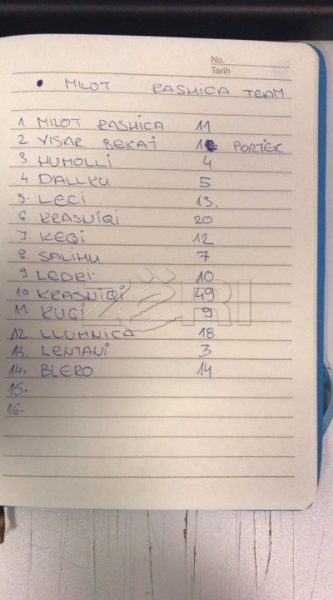 No.
Tarih
• MILOT RASHICA TEAM
1 MILOT RASHICA 11
2 VISAR BEKAJ 1 PORTIER
3 HUMOLLI 4
4 DALLKU 5
5. LECI 13.
6. KRASNIQI 20
7. KEQI 12
8. SALIHU 7
9 LEDRI 10
10 KRASNIQI 49
11 KUGI 9
12. LLUMNICA 18
13. LENJANI 3
14. BLERO 14
15.
16.